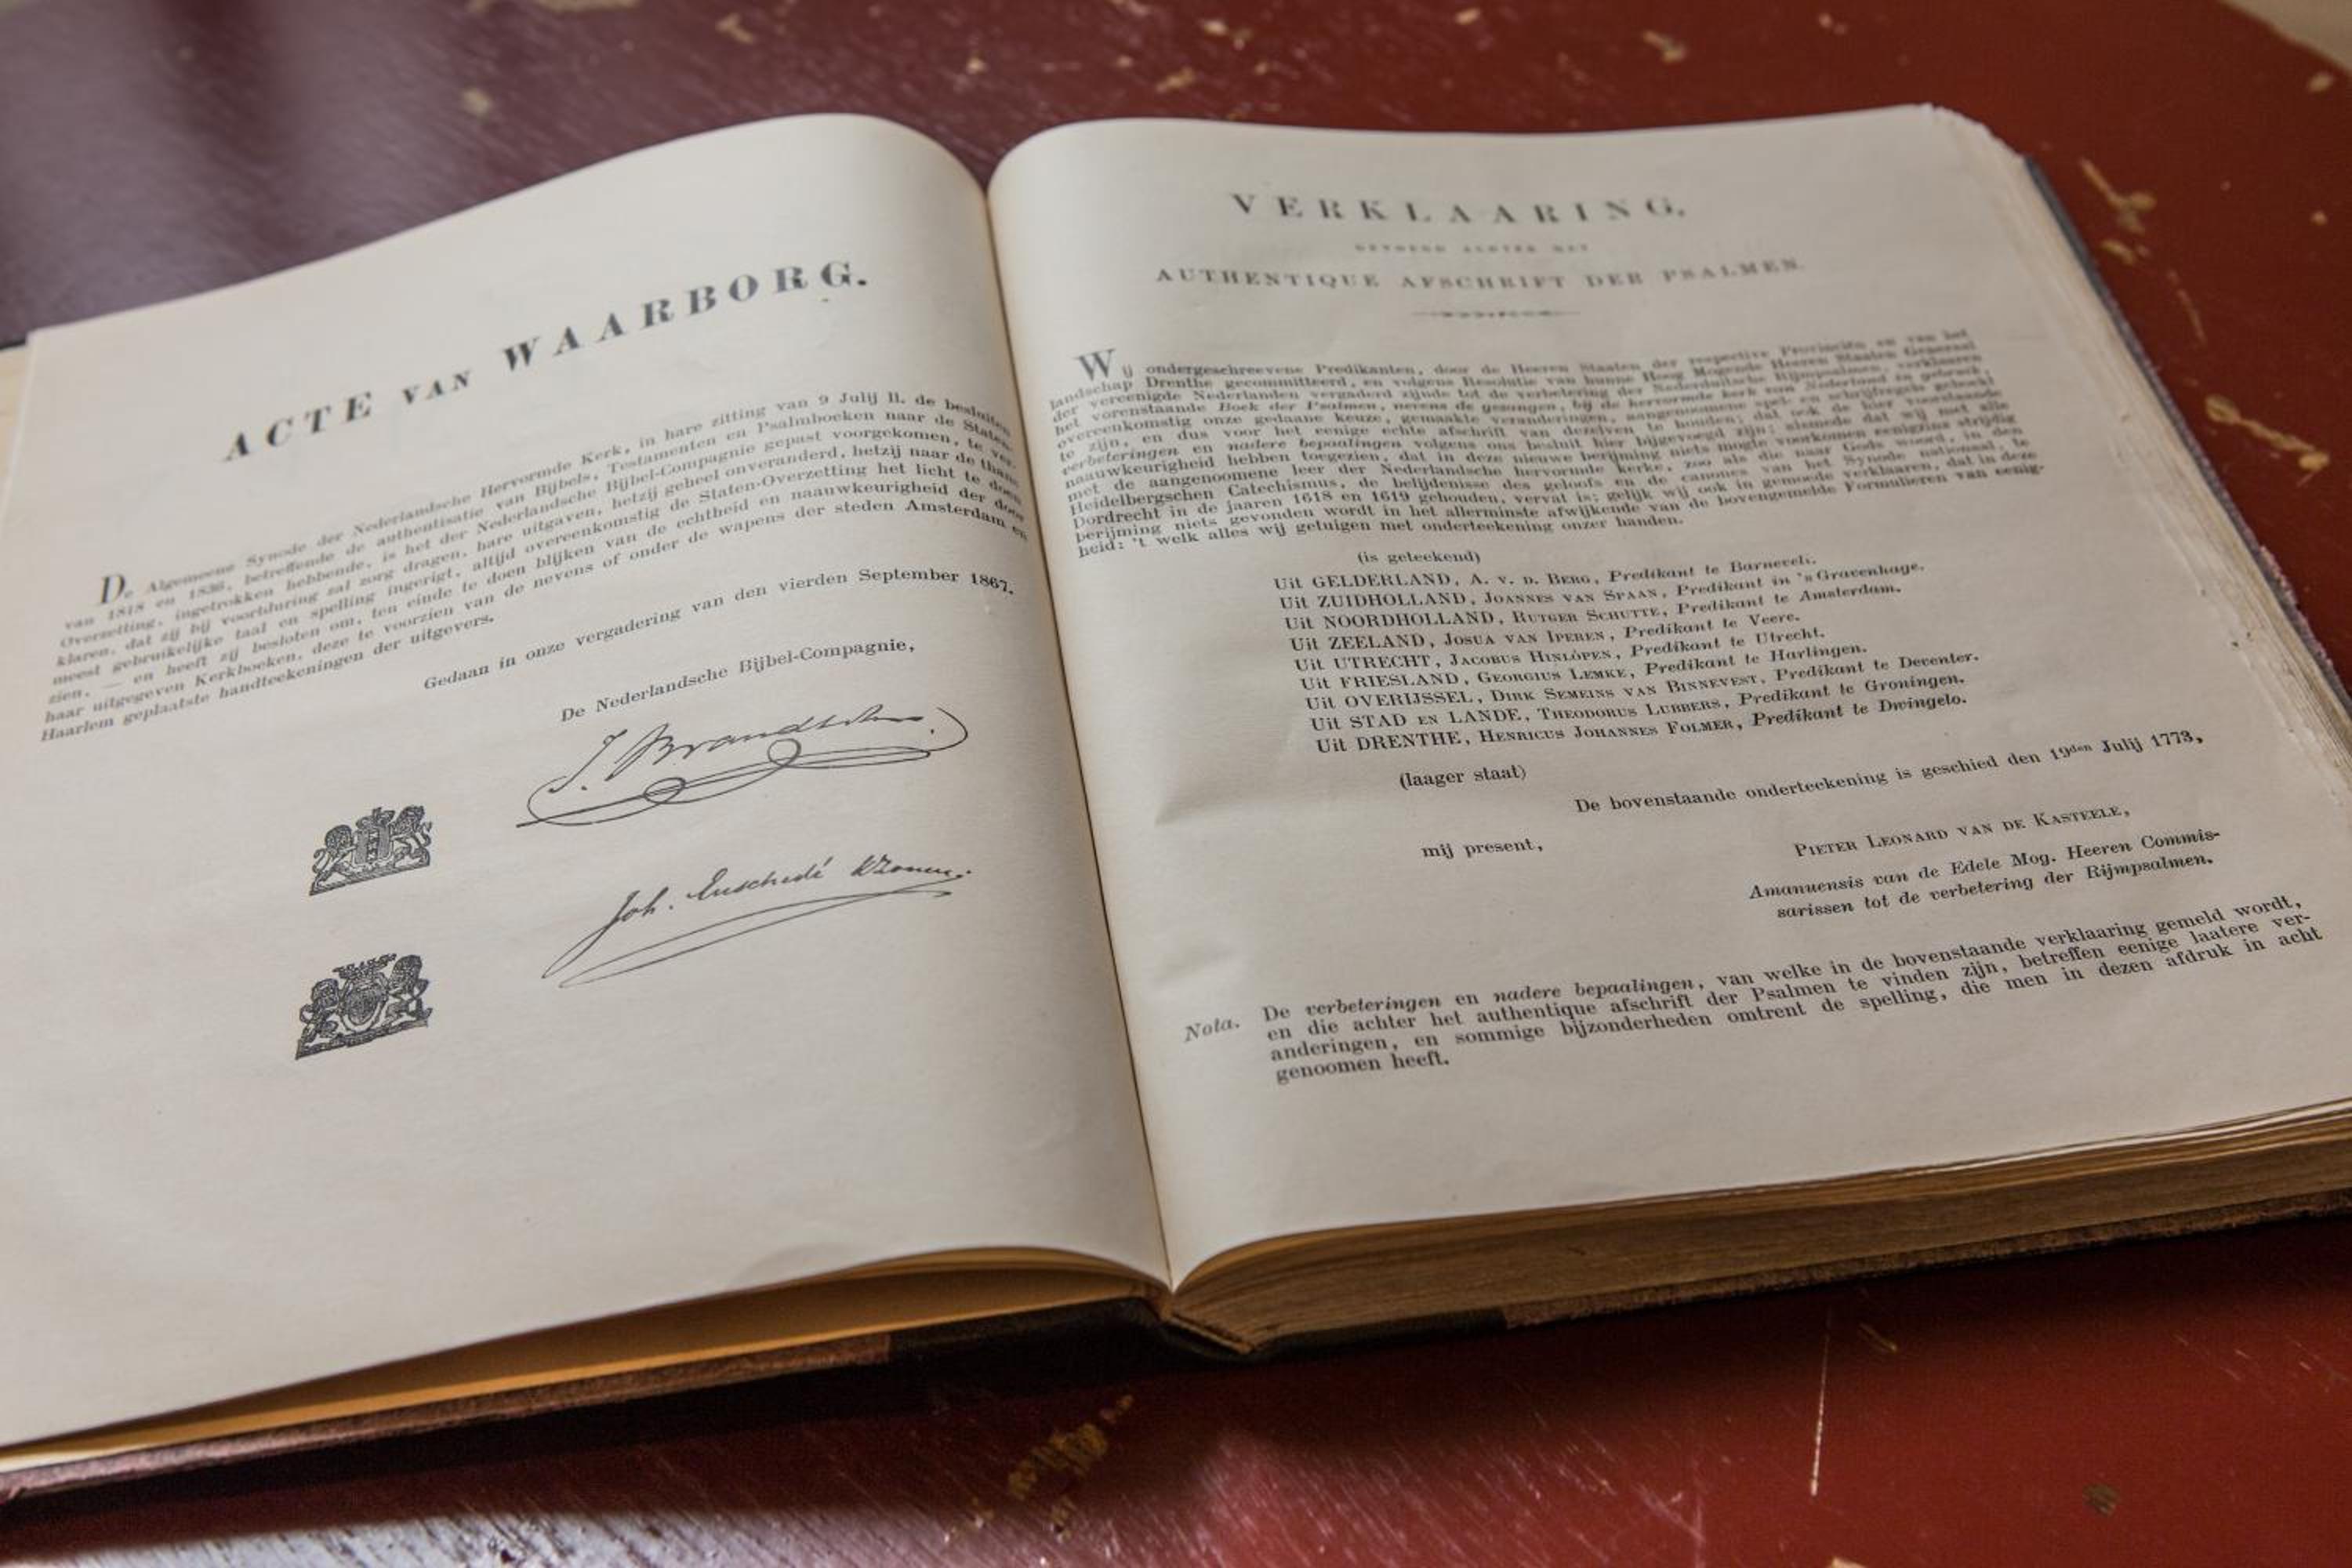 ACTE VAN WAARBORG.
De Algemeene Synode der Nederlandsche Hervormde Kerk, in hare zitting van 9 Julij ll. de besluiten
van 1818 en 1836, betreffende de authentisatie van Bijbels, Testamenten en Psalmboeken naar de Staten-
Overzetting, ingetrokken hebbende, is het der Nederlandsche Bijbel-Compagnie gepast voorgekomen, te ver-
klaren, dat zij bij voortduring zal zorg dragen, hare uitgaven, hetzij geheel onveranderd, hetzij naar de thans
meest gebruikelijke taal en spelling ingerigt, altijd overeenkomstig de Staten-Overzetting het licht te doen
zien, — en heeft zij besloten om, ten einde te doen blijken van de echtheid en naauwkeurigheid der door
haar uitgegeven Kerkboeken, deze te voorzien van de nevens of onder de wapens der steden Amsterdam en
Haarlem geplaatste handteekeningen der uitgevers.
Gedaan in onze vergadering van den vierden September 1867.
De Nederlandsche Bijbel-Compagnie,
J. Brandt
Joh. Enschedé
VERKLAARING,
GEVOEGD ACHTER HET
AUTHENTIQUE AFSCHRIFT DER PSALMEN.
Wij ondergeschreevene Predikanten, door de Heeren Staaten der respective Provinciën en van het
landschap Drenthe gecommitteerd, en volgens Resolutie van hunne Hoog Mogende Heeren Staaten Generaal
der vereenigde Nederlanden vergaderd zijnde tot de verbetering der Nederduitsche Rijmpsalmen, verklaaren
het vorenstaande Boek der Psalmen, nevens de gezangen, bij de hervormde kerk van Nederland in gebruik,
overeenkomstig onze gedaane keuze, gemaakte veranderingen, aangenoomene spel- en schrijfregels gekeekt
te zijn, en dus voor het eenige echte afschrift van dezelven te houden; dat ook de hier voorstaande
verbeteringen en nadere bepaalingen volgens ons besluit hier bijgevoegd zijn; alsmede dat wij met alle
naauwkeurigheid hebben toegezien, dat in deze nieuwe berijming niets mogte voorkomen eenigzins strijdig
met de aangenoomene leer der Nederlandsche hervormde kerke, zoo als die naar Gods woord, in den
Heidelbergschen Catechismus, de belijdenisse des geloofs en de canones van het Synode nationaal, te
Dordrecht in de jaaren 1618 en 1619 gehouden, vervat is; gelijk wij ook in gemoede verklaaren, dat in deze
berijming niets gevonden wordt in het allerminste afwijkende van de bovengemelde Formulieren van eenig-
heid: 't welk alles wij getuigen met onderteekening onzer handen.
(is geteekend)
Uit GELDERLAND, A. v. d. Berg, Predikant te Barneveld.
Uit ZUIDHOLLAND, Joannes van Spaan, Predikant in 's Gravenhage.
Uit NOORDHOLLAND, Rutger Schutte, Predikant te Amsterdam.
Uit ZEELAND, Josua van Iperen, Predikant te Veere.
Uit UTRECHT, Jacobus Hinlópen, Predikant te Utrecht.
Uit FRIESLAND, Georgius Lemke, Predikant te Harlingen.
Uit OVERIJSSEL, Dirk Semeins van Binnevest, Predikant te Deventer.
Uit STAD EN LANDE, Theodorus Lubbers, Predikant te Groningen.
Uit DRENTHE, Henricus Johannes Folmer, Predikant te Dwingelo.
(laager staat)
De bovenstaande onderteekening is geschied den 19den Julij 1773,
mij present,
Pieter Leonard van de Kasteele,
Amanuensis van de Edele Mog. Heeren Commis-
sarissen tot de verbetering der Rijmpsalmen.
Nota. De verbeteringen en nadere bepaalingen, van welke in de bovenstaande verklaaring gemeld wordt,
en die achter het authentique afschrift der Psalmen te vinden zijn, betreffen eenige laatere ver-
anderingen, en sommige bijzonderheden omtrent de spelling, die men in dezen afdruk in acht
genoomen heeft.